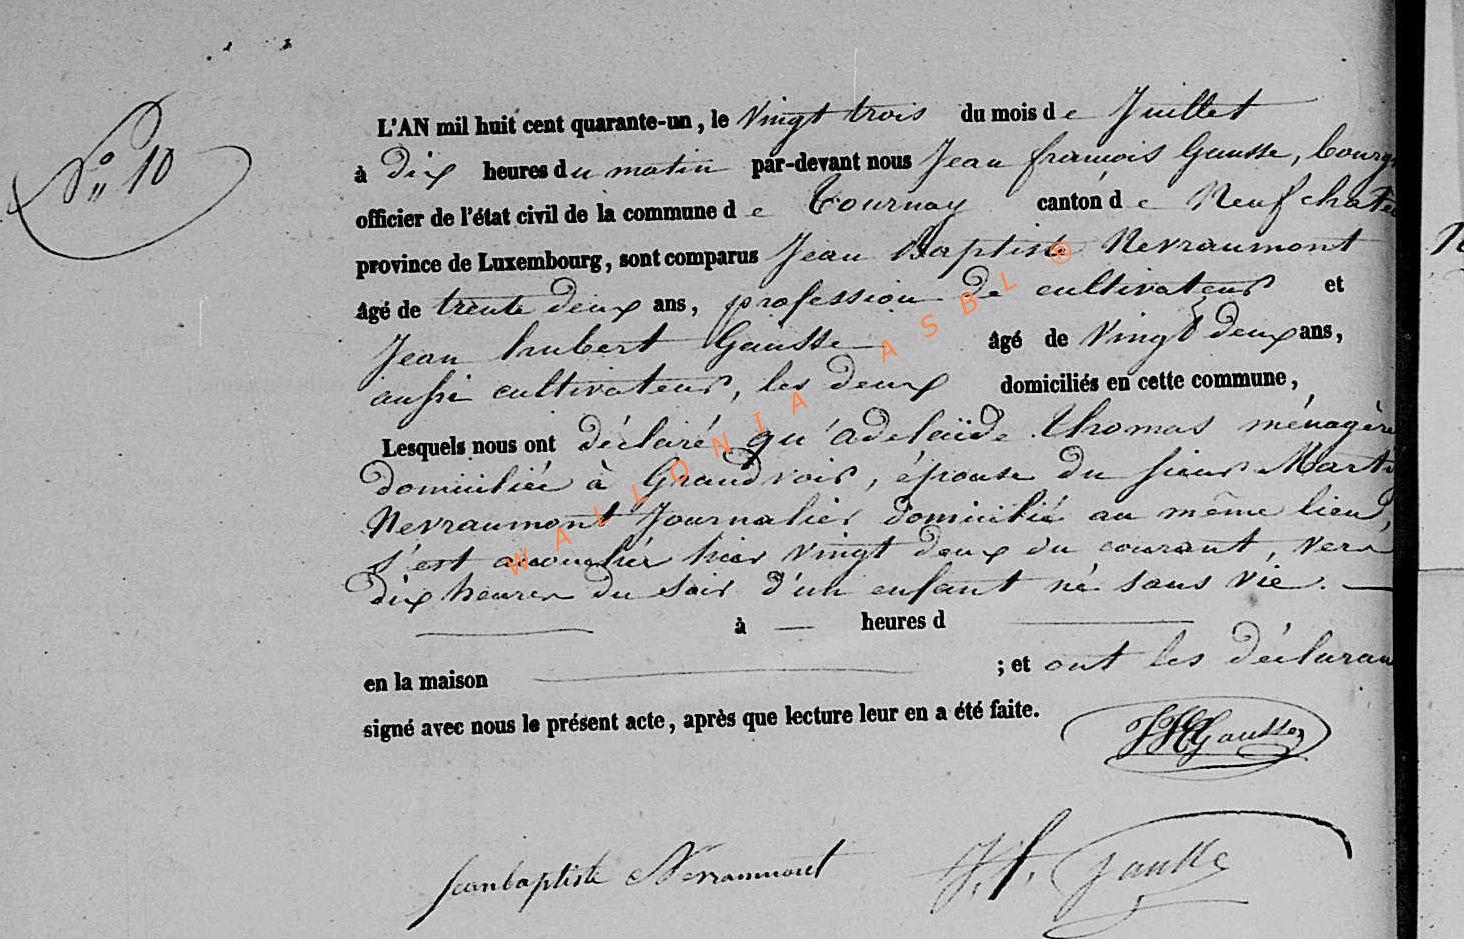 N° 10
L'AN mil huit cent quarante-un, le Vingt trois du mois de Juillet
à dix heures du matin par-devant nous Jean françois Gausse, bourg
officier de l'état civil de la commune de Tournay canton de Neufchate
province de Luxembourg, sont comparus Jean Baptiste Nevraumont
âgé de trente deux ans, profession de cultivateur et
Jean hubert Gausse âgé de Vingt deux ans,
aussi cultivateur, les deux domiciliés en cette commune,
Lesquels nous ont déclaré qu'adelaïde thomas ménagère
domiciliée à Grandvoir, épouse du sieur Marti
Nevraumont Journalier domicilié au même lieu,
s'est accouchée hier vingt deux du courant, vers
dix heures du soir d'un enfant né sans vie.
à — heures d
en la maison ; et ont les déclaran
signé avec nous le présent acte, après que lecture leur en a été faite.
JHGausse
Jeanbaptiste Nevraumont J. f. Gausse
WALLONIA ASBL ®